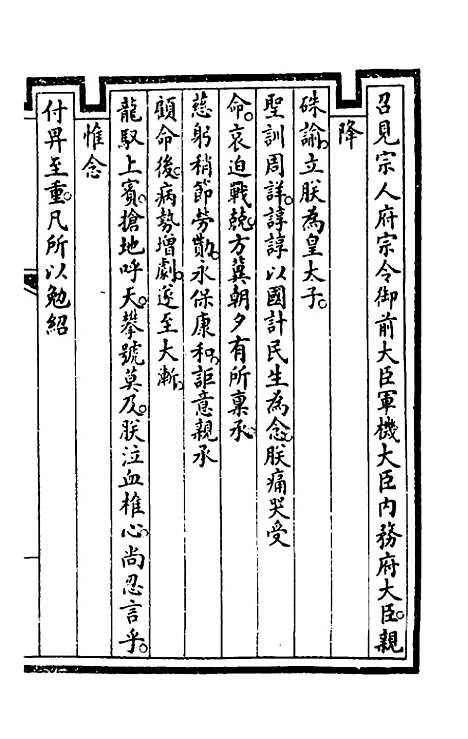 召見宗人府宗令御前大臣軍機大臣内務府大臣。親
降
硃諭。立朕為皇太子。
聖訓周詳。諄諄以國計民生為念。朕痛哭受
命。哀迫戰兢。方冀朝夕有所稟承。
慈躬稍節勞勩。永保康和。詎意親承
顧命後。病勢增劇。遂至大漸。
龍馭上賓。搶地呼天。攀號莫及。朕泣血椎心。尚忍言乎。
惟念
付畀至重。凡所以勉紹